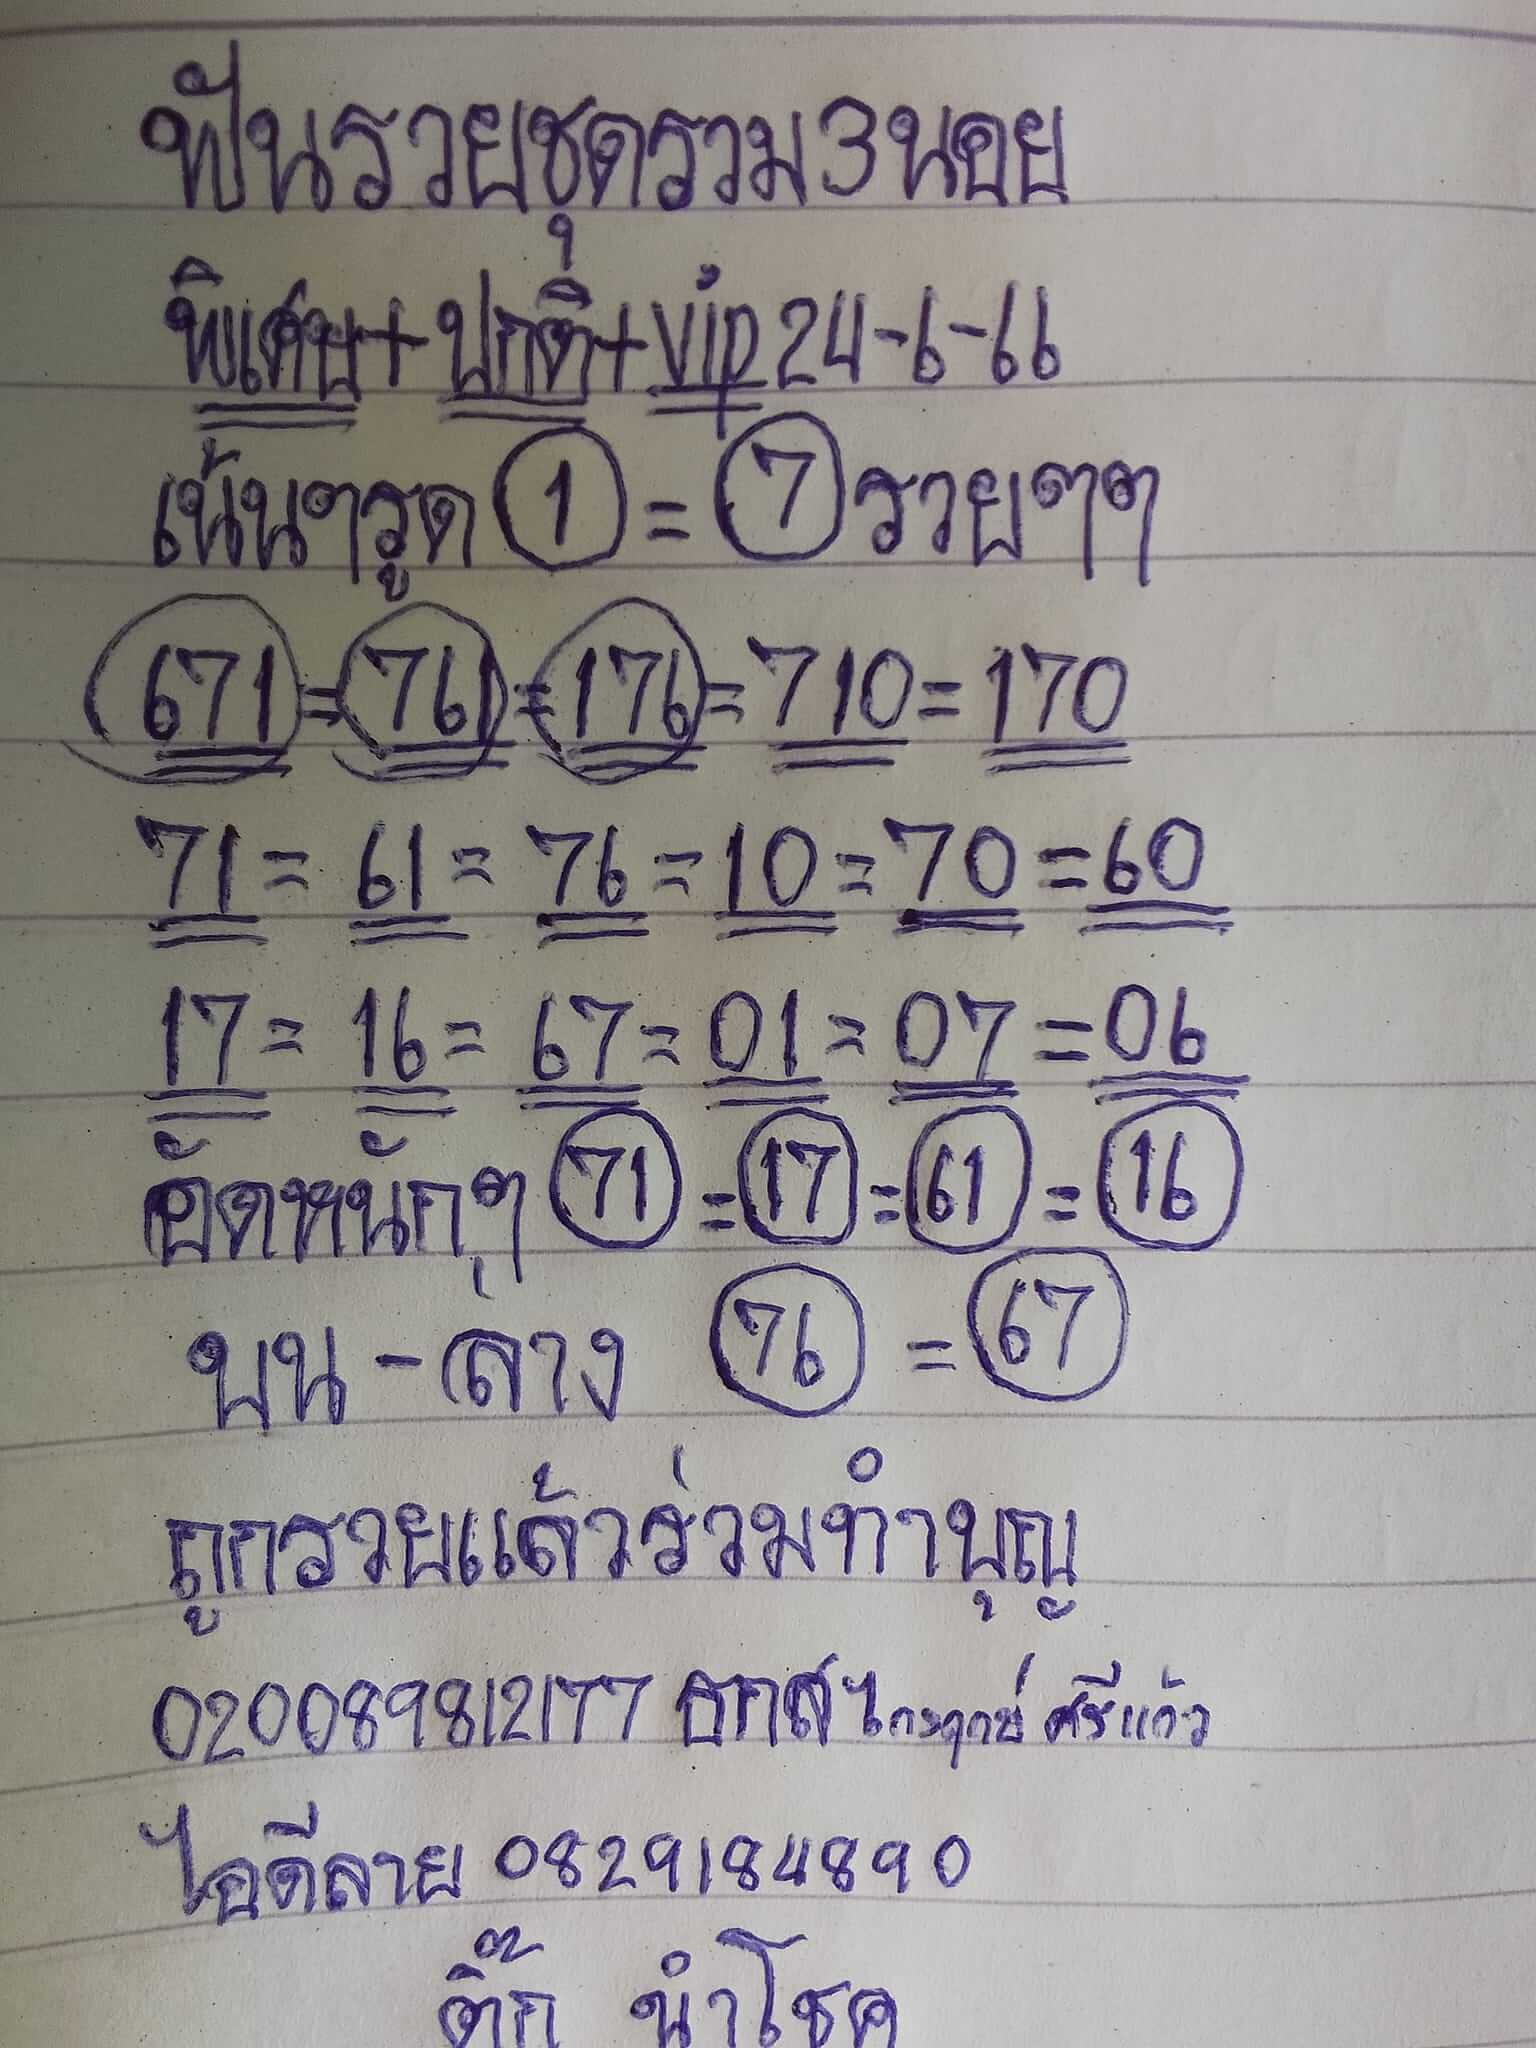 ฟันรวยชุดรวม3นอย
พิเศษ+ปกติ+vip 24-6-66
เน้นๆรูด 1 = 7 รวยๆๆ
671=761=176=710=170
71=61=76=10=70=60
17=16=67=01=07=06
อัดหนักๆ 71=17=61=16
บน-ล่าง 76=67
ถูกรวยแล้วร่วมทำบุญ
020089812177 ธกส ไกรฤกษ์ ศรีแก้ว
ไอดีลาย 0829184890
ติ๊ก นำโชค